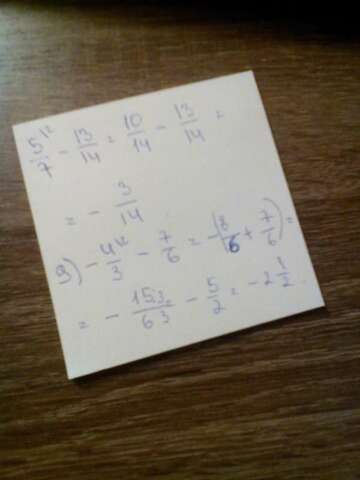 5/7 - 13/14 = 10/14 - 13/14 =
= - 3/14
9) - 4/3 - 7/6 = -(8/6 + 7/6) =
= - 15:3/6:3 - 5/2 = - 2 1/2.